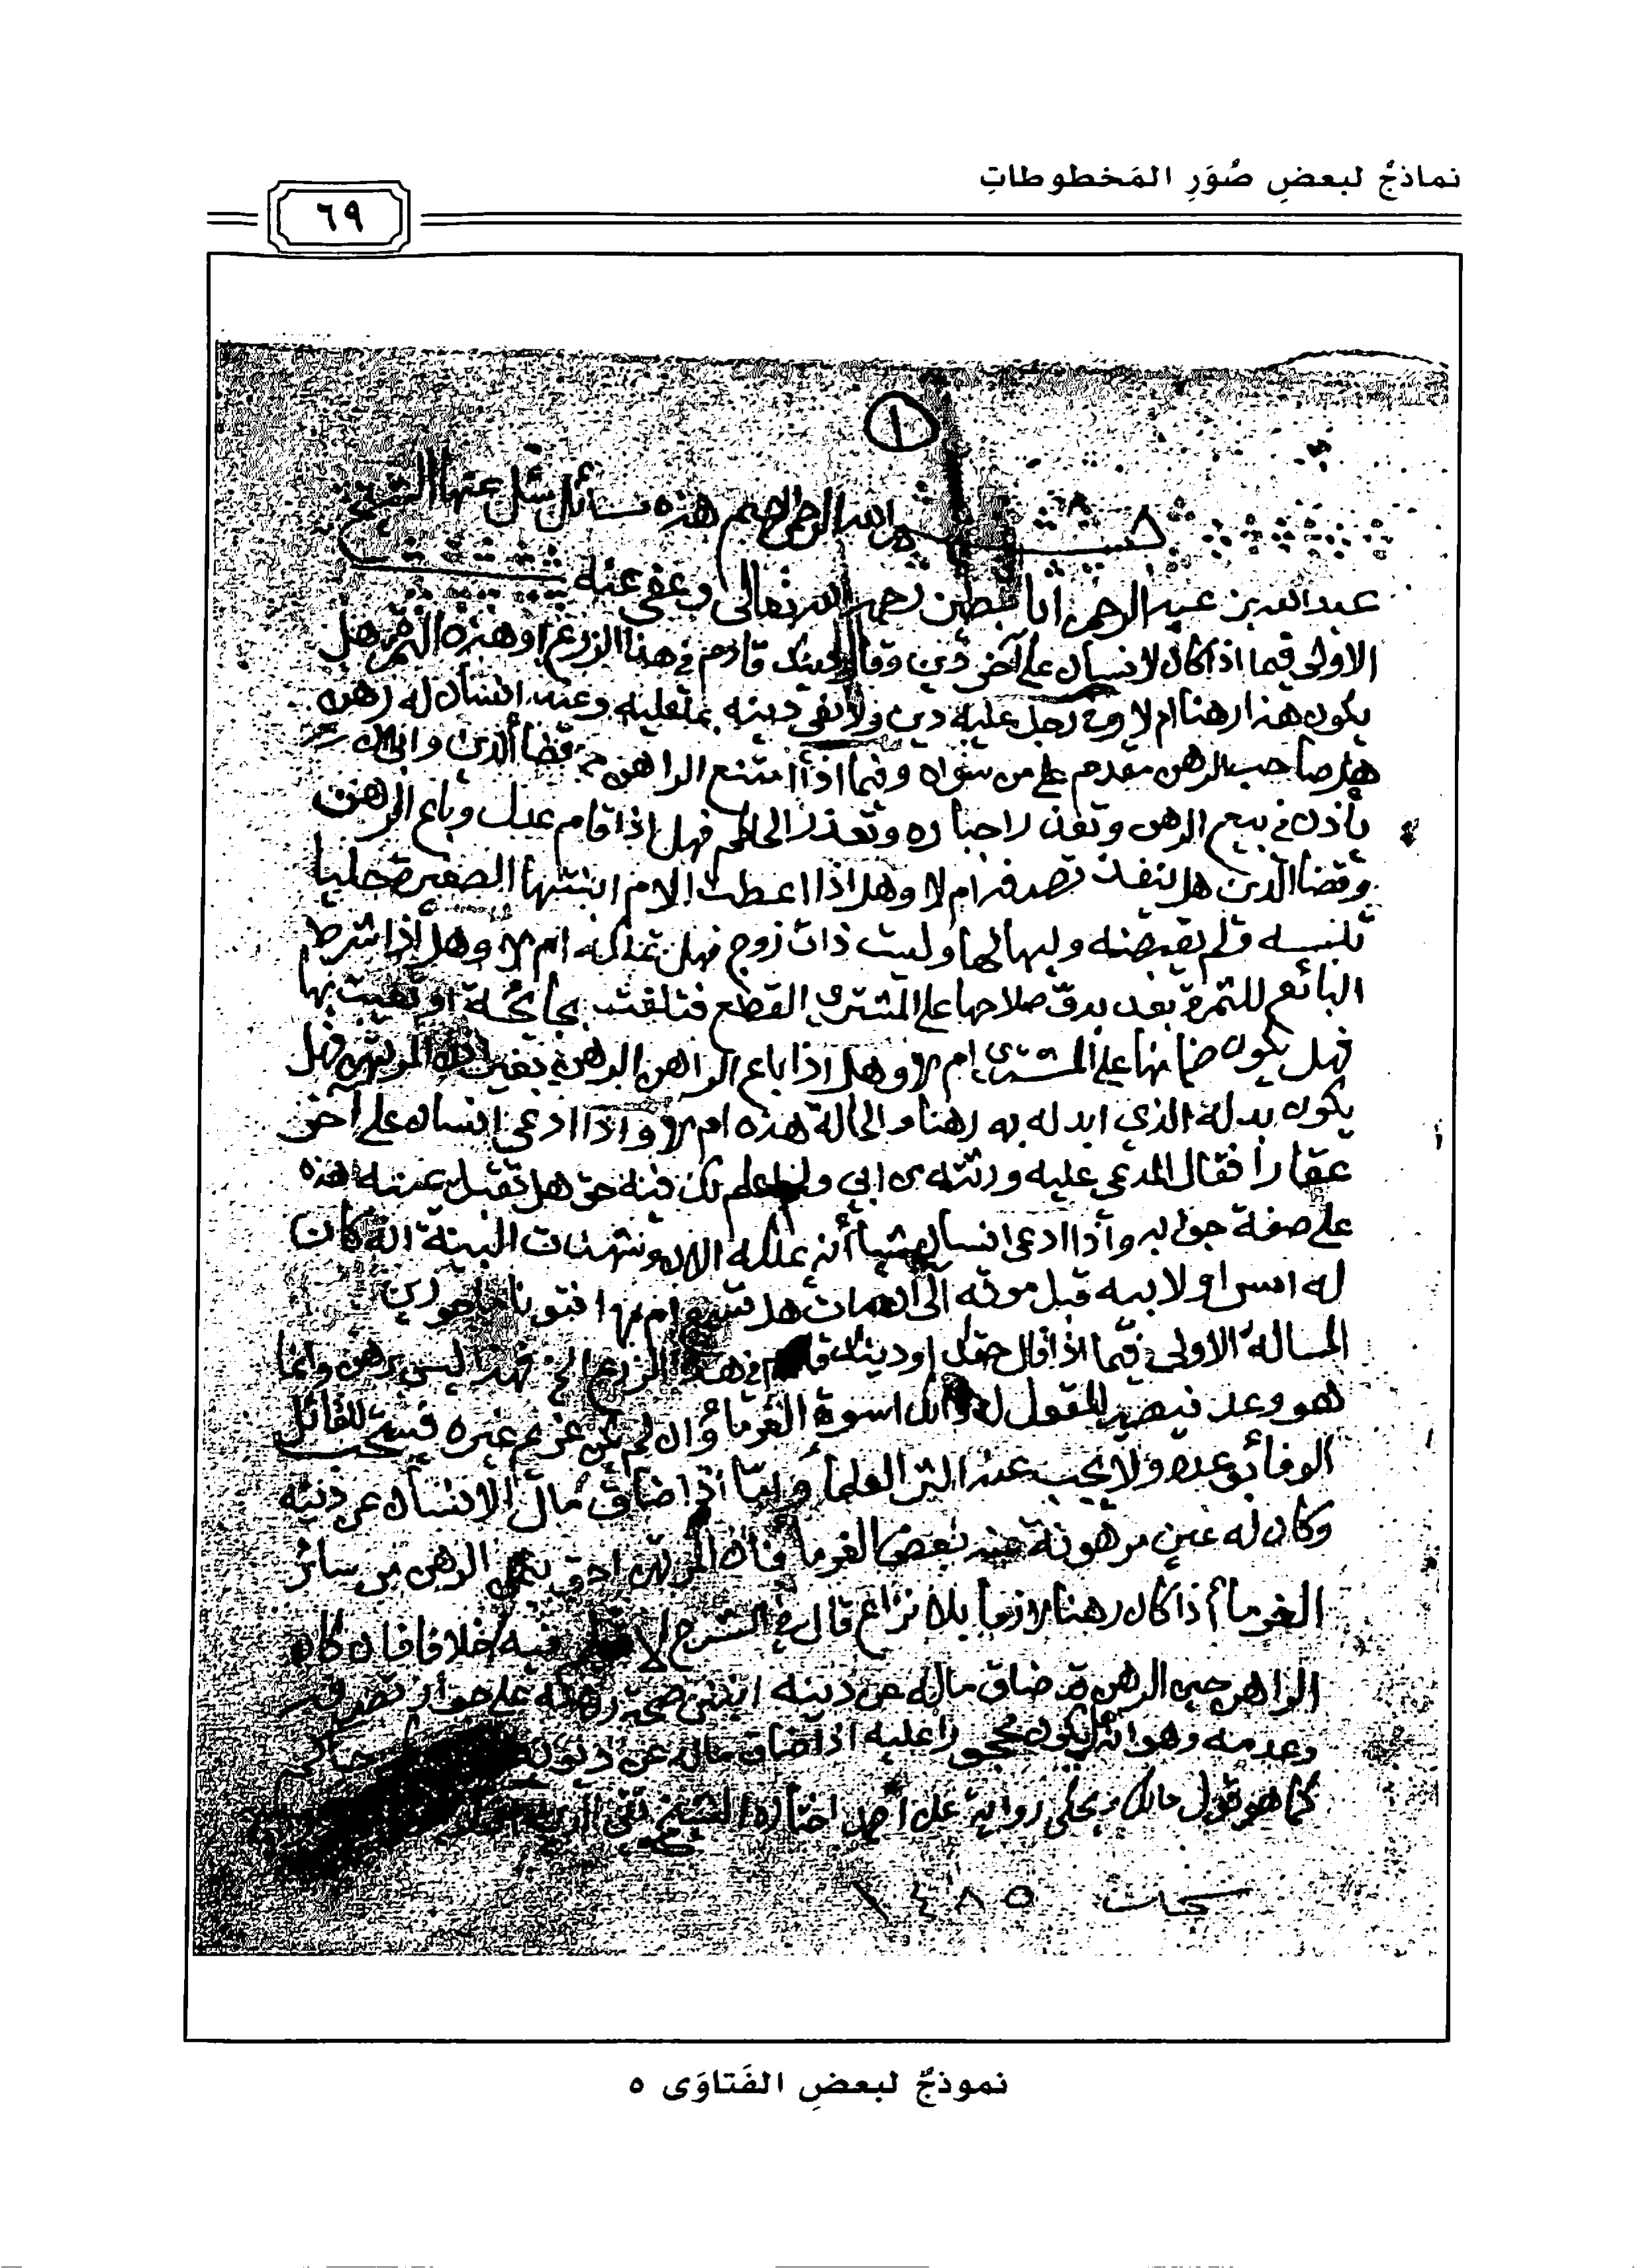 نماذجُ لبعضِ صُوَرِ المَخطوطاتِ
٦٩
١
بسم الله الرحمن الرحيم هذه مسائل سئل عنها الشيخ
عبد الله بن عبد الرحمن ابا بطين رحمه الله تعالى وعفى عنه
الاولى فيما اذا كان لانسان على آخر دين وقال دينك قادم في هذا الزرع او هذه التمره هل
يكون هذا رهنا ام لا ومن رجل عليه دين ولا يفي دينه بما عليه وعند انسان له رهن
هل صاحب الرهن مقدم على من سواه وفيما اذا امتنع الراهن من قضا الدين وابى ان
يأذن في بيع الرهن وتعذر اجباره وتعذر الحاكم فهل اذا قام عدل وباع الرهن
وقضا الدين هل ينفذ تصرفه ام لا وهل اذا اعطت الام ابنتها الصغيرة حليا
تلبسه ولم يقبضه وليها لها وليست ذات زوج فهل تملكه ام لا وهل اذا شرط
البائع للثمرة بعد بدو صلاحها على المشتري القطع فتلفت بجائحة او تعيبت بها
فهل يكون ضمانها على المشتري ام لا وهل اذا باع الراهن الرهن بغير اذن المرتهن فهل
يكون بدله الذي ابدله به رهنا والحالة هذه ام لا واذا ادعى انسان على آخر
عقارا فقال المدعى عليه ورثته من ابي ولا اعلم لك فيه حق هل تقبل يمينه هذه
على صفة جوابه واذا ادعى انسان شيأ أنه يملكه الان وشهدت البينة انه كان
له امس او لابيه قبل موته الى ان مات هل تسمع ام لا افتونا ماجورين
المسالة الاولى فيما اذا قال حقك او دينك قادم في هذا الزرع الخ فهذا ليس برهن وانما
هو وعد فيصير المقول له ذلك اسوة الغرماء وان لم يكن غريم غيره فيستحب للقائل
الوفا بوعده ولا يجب عند اكثر العلما واما اذا ضاق مال الانسان عن دينه
وكان له عين مرهونة عند بعض الغرما فان المرتهن احق بثمن الرهن من سائر
الغرما أذا كان رهنا لازما بلا نزاع قال في الشرح لا نعلم فيه خلافا فان كان
الراهن حين الرهن قد ضاق ماله عن دينه انبنى صحة رهنه على جواز تصرفه
وعدمه وهو انه يكون محجورا عليه اذا ضاق ماله عن ديونه حاكم
كما هو قول مالك ويحكى رواية عن احمد اختاره الشيخ تقي الدين
نموذجٌ لبعضِ الفَتاوَى ٥